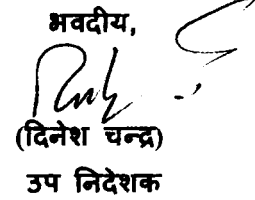 भवदीय,
(दिनेश चन्द्र)
उप निदेशक